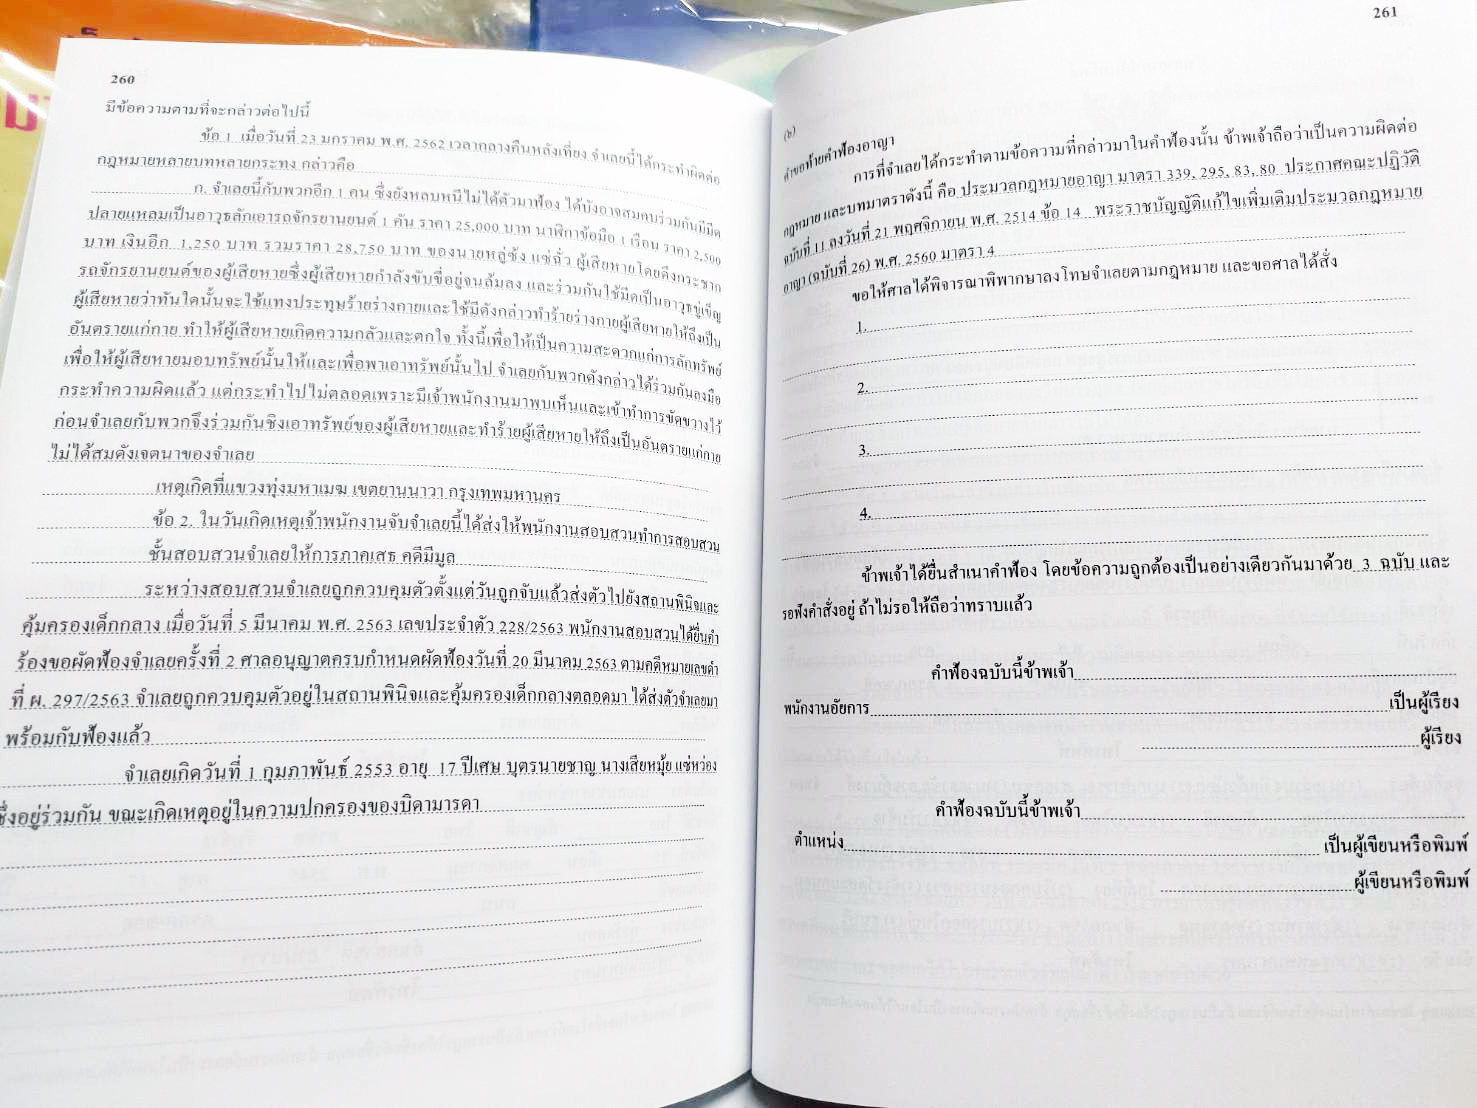 260
มีข้อความตามที่จะกล่าวต่อไปนี้
ข้อ 1 เมื่อวันที่ 23 มกราคม พ.ศ. 2562 เวลากลางคืนหลังเที่ยง จำเลยนี้ได้กระทำผิดต่อ
กฎหมายหลายบทหลายกระทง กล่าวคือ
ก. จำเลยนี้กับพวกอีก 1 คน ซึ่งยังหลบหนีไม่ได้ตัวมาฟ้อง ได้บังอาจสมคบร่วมกันมีมีด
ปลายแหลมเป็นอาวุธลักเอารถจักรยานยนต์ 1 คัน ราคา 25,000 บาท นาฬิกาข้อมือ 1 เรือน ราคา 2,500
บาท เงินอีก 1,250 บาท รวมราคา 28,750 บาท ของนายหลู่ซ้ง แซ่ฉั่ว ผู้เสียหายโดยดึงกระชาก
รถจักรยานยนต์ของผู้เสียหายซึ่งผู้เสียหายกำลังขับขี่อยู่จนล้มลง และร่วมกันใช้มีดเป็นอาวุธขู่เข็ญ
ผู้เสียหายว่าทันใดนั้นจะใช้แทงประทุษร้ายร่างกายและใช้มีดังกล่าวทำร้ายร่างกายผู้เสียหายให้ถึงเป็น
อันตรายแก่กาย ทำให้ผู้เสียหายเกิดความกลัวและตกใจ ทั้งนี้เพื่อให้เป็นความสะดวกแก่การลักทรัพย์
เพื่อให้ผู้เสียหายมอบทรัพย์นั้นให้และเพื่อพาเอาทรัพย์นั้นไป จำเลยกับพวกดังกล่าวได้ร่วมกันลงมือ
กระทำความผิดแล้ว แต่กระทำไปไม่ตลอดเพราะมีเจ้าพนักงานมาพบเห็นและเข้าทำการขัดขวางไว้
ก่อนจำเลยกับพวกจึงร่วมกันชิงเอาทรัพย์ของผู้เสียหายและทำร้ายผู้เสียหายให้ถึงเป็นอันตรายแก่กาย
ไม่ได้สมดังเจตนาของจำเลย
เหตุเกิดที่แขวงทุ่งมหาเมฆ เขตยานนาวา กรุงเทพมหานคร
ข้อ 2. ในวันเกิดเหตุเจ้าพนักงานจับจำเลยนี้ได้ส่งให้พนักงานสอบสวนทำการสอบสวน
ชั้นสอบสวนจำเลยให้การภาคเสธ คดีมีมูล
ระหว่างสอบสวนจำเลยถูกควบคุมตัวตั้งแต่วันถูกจับแล้วส่งตัวไปยังสถานพินิจและ
คุ้มครองเด็กกลาง เมื่อวันที่ 5 มีนาคม พ.ศ. 2563 เลขประจำตัว 228/2563 พนักงานสอบสวนได้ยื่นคำ
ร้องขอผัดฟ้องจำเลยครั้งที่ 2 ศาลอนุญาตครบกำหนดผัดฟ้องวันที่ 20 มีนาคม 2563 ตามคดีหมายเลขดำ
ที่ ผ. 297/2563 จำเลยถูกควบคุมตัวอยู่ในสถานพินิจและคุ้มครองเด็กกลางตลอดมา ได้ส่งตัวจำเลยมา
พร้อมกับฟ้องแล้ว
จำเลยเกิดวันที่ 1 กุมภาพันธ์ 2553 อายุ 17 ปีเศษ บุตรนายชาญ นางเสียหมุ้ย แซ่หว่อง
ซึ่งอยู่ร่วมกัน ขณะเกิดเหตุอยู่ในความปกครองของบิดามารดา
261
(๒)
คำขอท้ายคำฟ้องอาญา
การที่จำเลยได้กระทำตามข้อความที่กล่าวมาในคำฟ้องนั้น ข้าพเจ้าถือว่าเป็นความผิดต่อ
กฎหมาย และบทมาตราดังนี้ คือ ประมวลกฎหมายอาญา มาตรา 339, 295, 83, 80 ประกาศคณะปฏิวัติ
ฉบับที่ 11 ลงวันที่ 21 พฤศจิกายน พ.ศ. 2514 ข้อ 14 พระราชบัญญัติแก้ไขเพิ่มเติมประมวลกฎหมาย
อาญา (ฉบับที่ 26) พ.ศ. 2560 มาตรา 4
ขอให้ศาลได้พิจารณาพิพากษาลงโทษจำเลยตามกฎหมาย และขอศาลได้สั่ง
1.
2.
3.
4.
ข้าพเจ้าได้ยื่นสำเนาคำฟ้อง โดยข้อความถูกต้องเป็นอย่างเดียวกันมาด้วย 3 ฉบับ และ
รอฟังคำสั่งอยู่ ถ้าไม่รอให้ถือว่าทราบแล้ว
คำฟ้องฉบับนี้ข้าพเจ้า
พนักงานอัยการ เป็นผู้เรียง
ผู้เรียง
คำฟ้องฉบับนี้ข้าพเจ้า
ตำแหน่ง เป็นผู้เขียนหรือพิมพ์
ผู้เขียนหรือพิมพ์